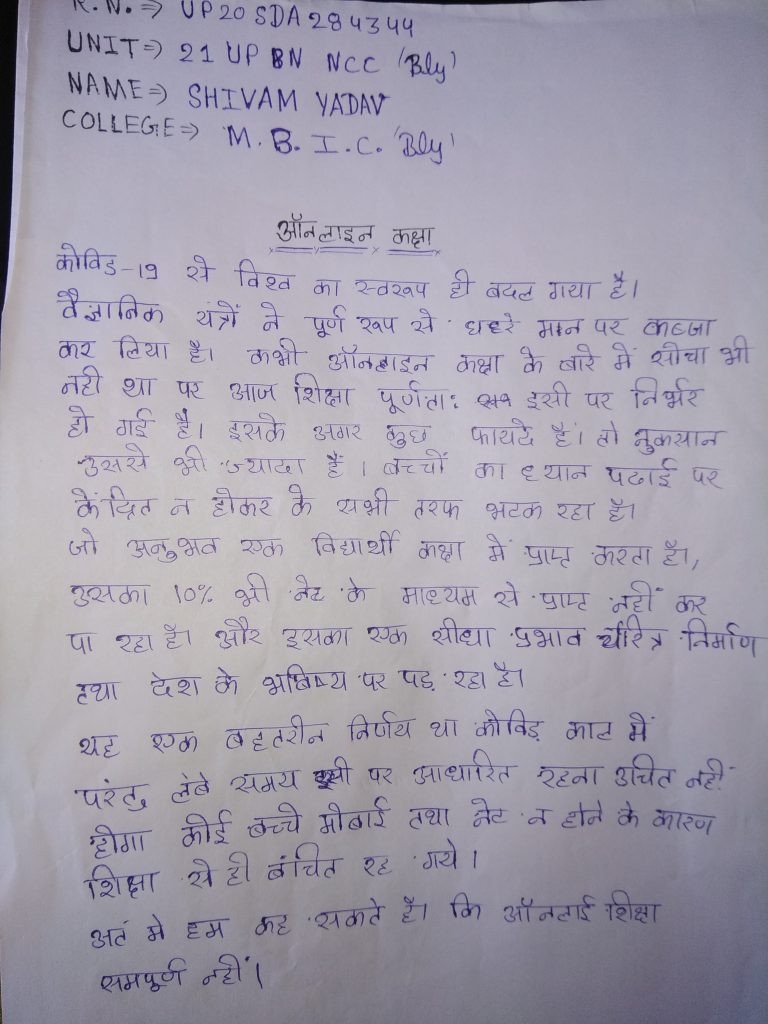 R.N. ⇒ UP20SDA284344
UNIT ⇒ 21 UP BN NCC 'Bly'
NAME ⇒ SHIVAM YADAV
COLLEGE ⇒ M.B.I.C. 'Bly'
ऑनलाइन कक्षा
कोविड-19 से विश्व का स्वरूप ही बदल गया है।
वैज्ञानिक यंत्रों ने पूर्ण रूप से हमारे मान पर कब्जा
कर लिया है। कभी ऑनलाइन कक्षा के बारे में सोचा भी
नही था पर आज शिक्षा पूर्णता: इसी पर निर्भर
हो गई है। इसके अगर कुछ फायदे है। तो नुकसान
उससे भी ज्यादा हैं। बच्चों का ध्यान पढाई पर
केंद्रित न होकर के सभी तरफ भटक रहा है।
जो अनुभव एक विद्यार्थी कक्षा में प्राप्त करता है।,
उसका 10% भी नेट के माध्यम से प्राप्त नहीं कर
पा रहा है। और इसका एक सीधा प्रभाव चरित्र निर्माण
तथा देश के भबिष्य पर पड़ रहा है।
यह एक बहतरीन निर्णय था कोविड़ काल में
परंतु लंबे समय इसी पर आधारित रहना उचित नहीं
होगा कोई बच्चे मोबाई तथा नेट न होने के कारण
शिक्षा से ही बंचित रह गये।
अतं मे हम कह सकते है। कि ऑनलाई शिक्षा
समपूर्ण नहीं।